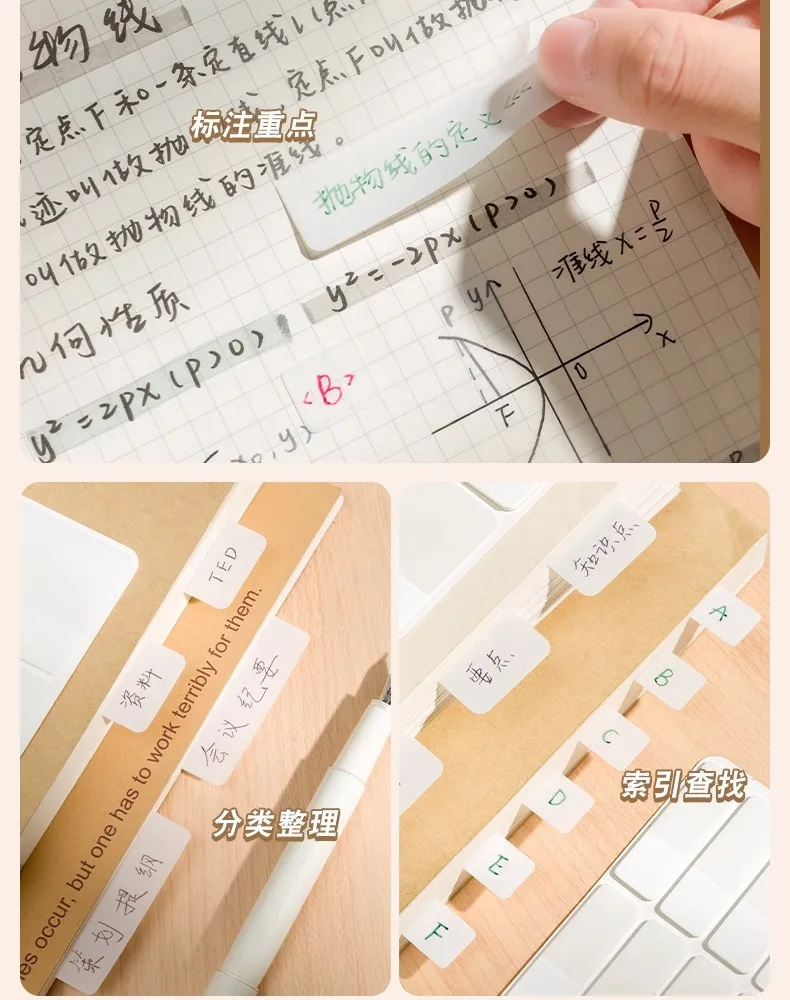 物线
定点F和一条定直线l(点
定点F叫做抛
标注重点
迹叫做抛物线
抛物线的定义<<<
叫做抛物线的准线。
几何性质
y²=-2px(p>0)
准线x=p/2
y²=2px(p>0)
P
y
x
O
F
<B>
x₀,y)
TED
资料
会议纪要
策划提纲
es occur, but one has to work terribly for them.
分类整理
知识点
要点
A
B
C
D
E
F
索引查找